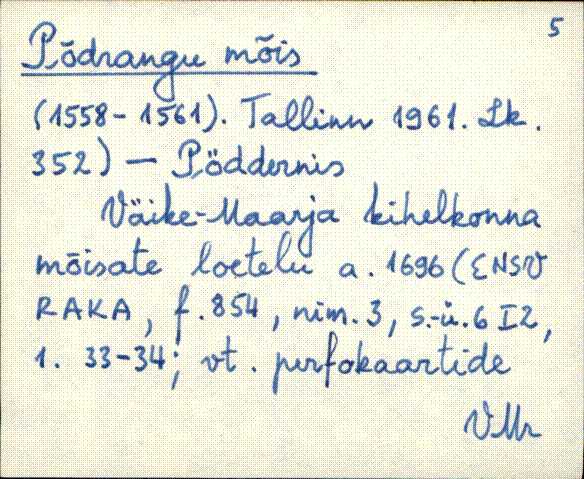 5
Põdrangu mõis
(1558-1561). Tallinn 1961. Lk.
352) — Pöddernis
Väike-Maarja kihelkonna
mõisate loetelu a. 1696 (ENSV
RAKA, f. 854, nim. 3, s.-ü. 6 I 2,
l. 33-34; vt. perfokaartide
VMr